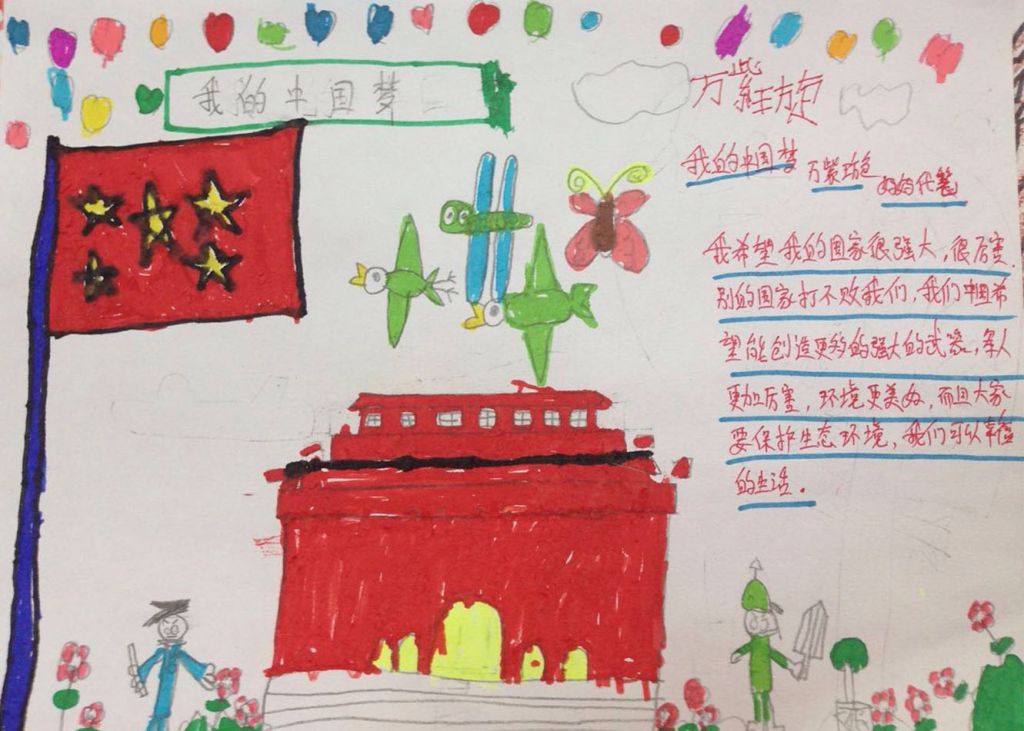 我的中国梦
万紫旋
我的中国梦 万紫旋 妈妈代笔
我希望我的国家很强大,很厉害.
别的国家打不败我们,我们中国希
望能创造更多的强大的武器,军人
更加厉害,环境更美好,而且大家
要保护生态环境,我们可以幸福
的生活.